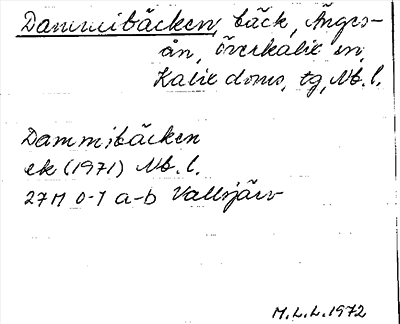 Dammibäcken, bäck, Änges-
ån, överkalix sn,
Kalix doms, tg, Nb. l.
Dammibäcken
ek (1971) Nb. l.
27M 0-1 a-b Valljärv
M.L.L. 1972